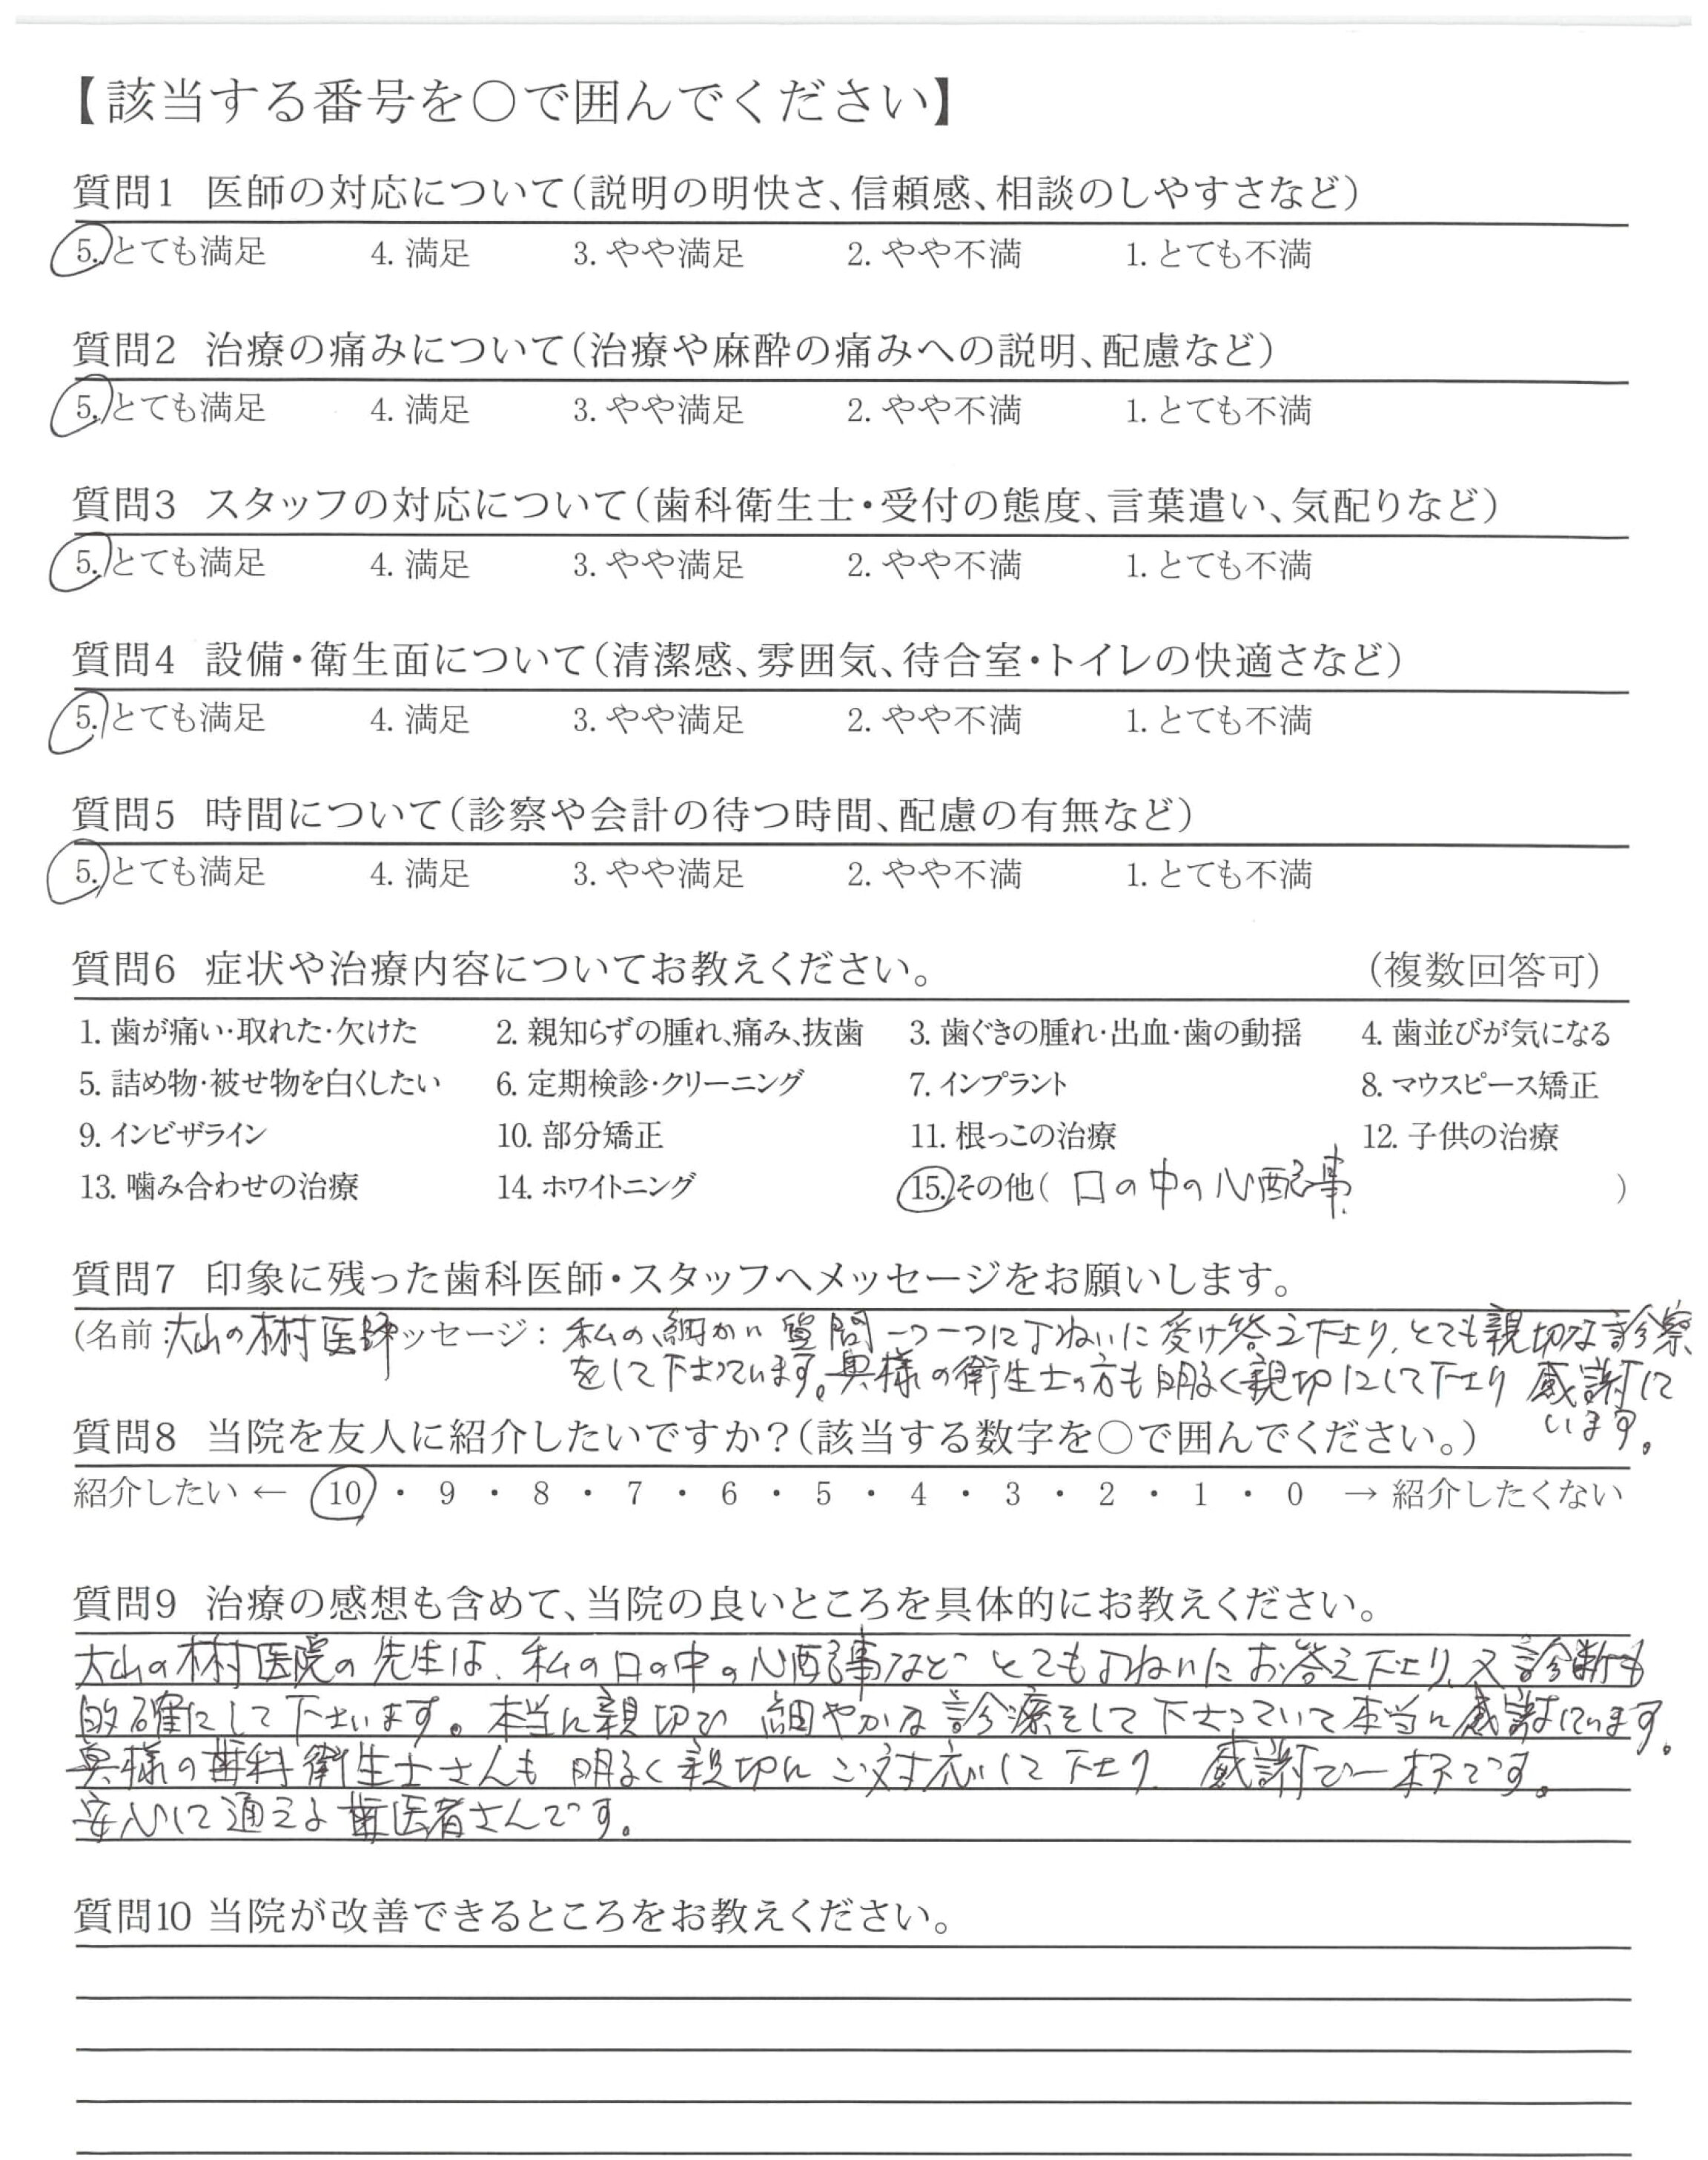 【該当する番号を〇で囲んでください】
質問1 医師の対応について(説明の明快さ、信頼感、相談のしやすさなど)
5. とても満足 4. 満足 3. やや満足 2. やや不満 1. とても不満
質問2 治療の痛みについて(治療や麻酔の痛みへの説明、配慮など)
5. とても満足 4. 満足 3. やや満足 2. やや不満 1. とても不満
質問3 スタッフの対応について(歯科衛生士・受付の態度、言葉遣い、気配りなど)
5. とても満足 4. 満足 3. やや満足 2. やや不満 1. とても不満
質問4 設備・衛生面について(清潔感、雰囲気、待合室・トイレの快適さなど)
5. とても満足 4. 満足 3. やや満足 2. やや不満 1. とても不満
質問5 時間について(診察や会計の待つ時間、配慮の有無など)
5. とても満足 4. 満足 3. やや満足 2. やや不満 1. とても不満
質問6 症状や治療内容についてお教えください。 (複数回答可)
1. 歯が痛い・取れた・欠けた 2. 親知らずの腫れ、痛み、抜歯 3. 歯ぐきの腫れ・出血・歯の動揺 4. 歯並びが気になる
5. 詰め物・被せ物を白くしたい 6. 定期検診・クリーニング 7. インプラント 8. マウスピース矯正
9. インビザライン 10. 部分矯正 11. 根っこの治療 12. 子供の治療
13. 噛み合わせの治療 14. ホワイトニング 15. その他( 口の中の心配事 )
質問7 印象に残った歯科医師・スタッフへメッセージをお願いします。
(名前:大山の木村医師 ッセージ: 私の細かい質問一つ一つに丁ねいに受け答え下さり、とても親切な診察
をして下さっています。奥様の衛生士の方も明るく親切にして下さり 感謝して
います。
質問8 当院を友人に紹介したいですか?(該当する数字を〇で囲んでください。)
紹介したい ← 10 ・ 9 ・ 8 ・ 7 ・ 6 ・ 5 ・ 4 ・ 3 ・ 2 ・ 1 ・ 0 → 紹介したくない
質問9 治療の感想も含めて、当院の良いところを具体的にお教えください。
大山の木村医院の先生は、私の口の中の心配事など とても丁ねいにお答え下さり、又診断も
的確にして下さいます。本当に親切で 細やかな診療をして下さっていて本当に感謝しています。
奥様の歯科衛生士さんも 明るく親切にご対応して下さり 感謝で一杯です。
安心して通える歯医者さんです。
質問10 当院が改善できるところをお教えください。